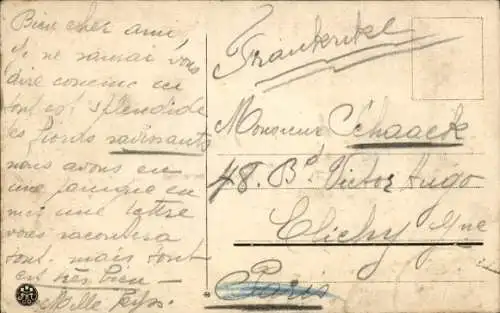 Bien cher ami,
Je ne saurai vous
dire comme ici
tout est splendide
les fjords ravissants
nous avons eu
une
une lettre
vous racontera
tout. mais tout
est très bien —
Mille
Frankrike
Monsieur Schaack
48. Bd. Victor Hugo
Clichy
Paris